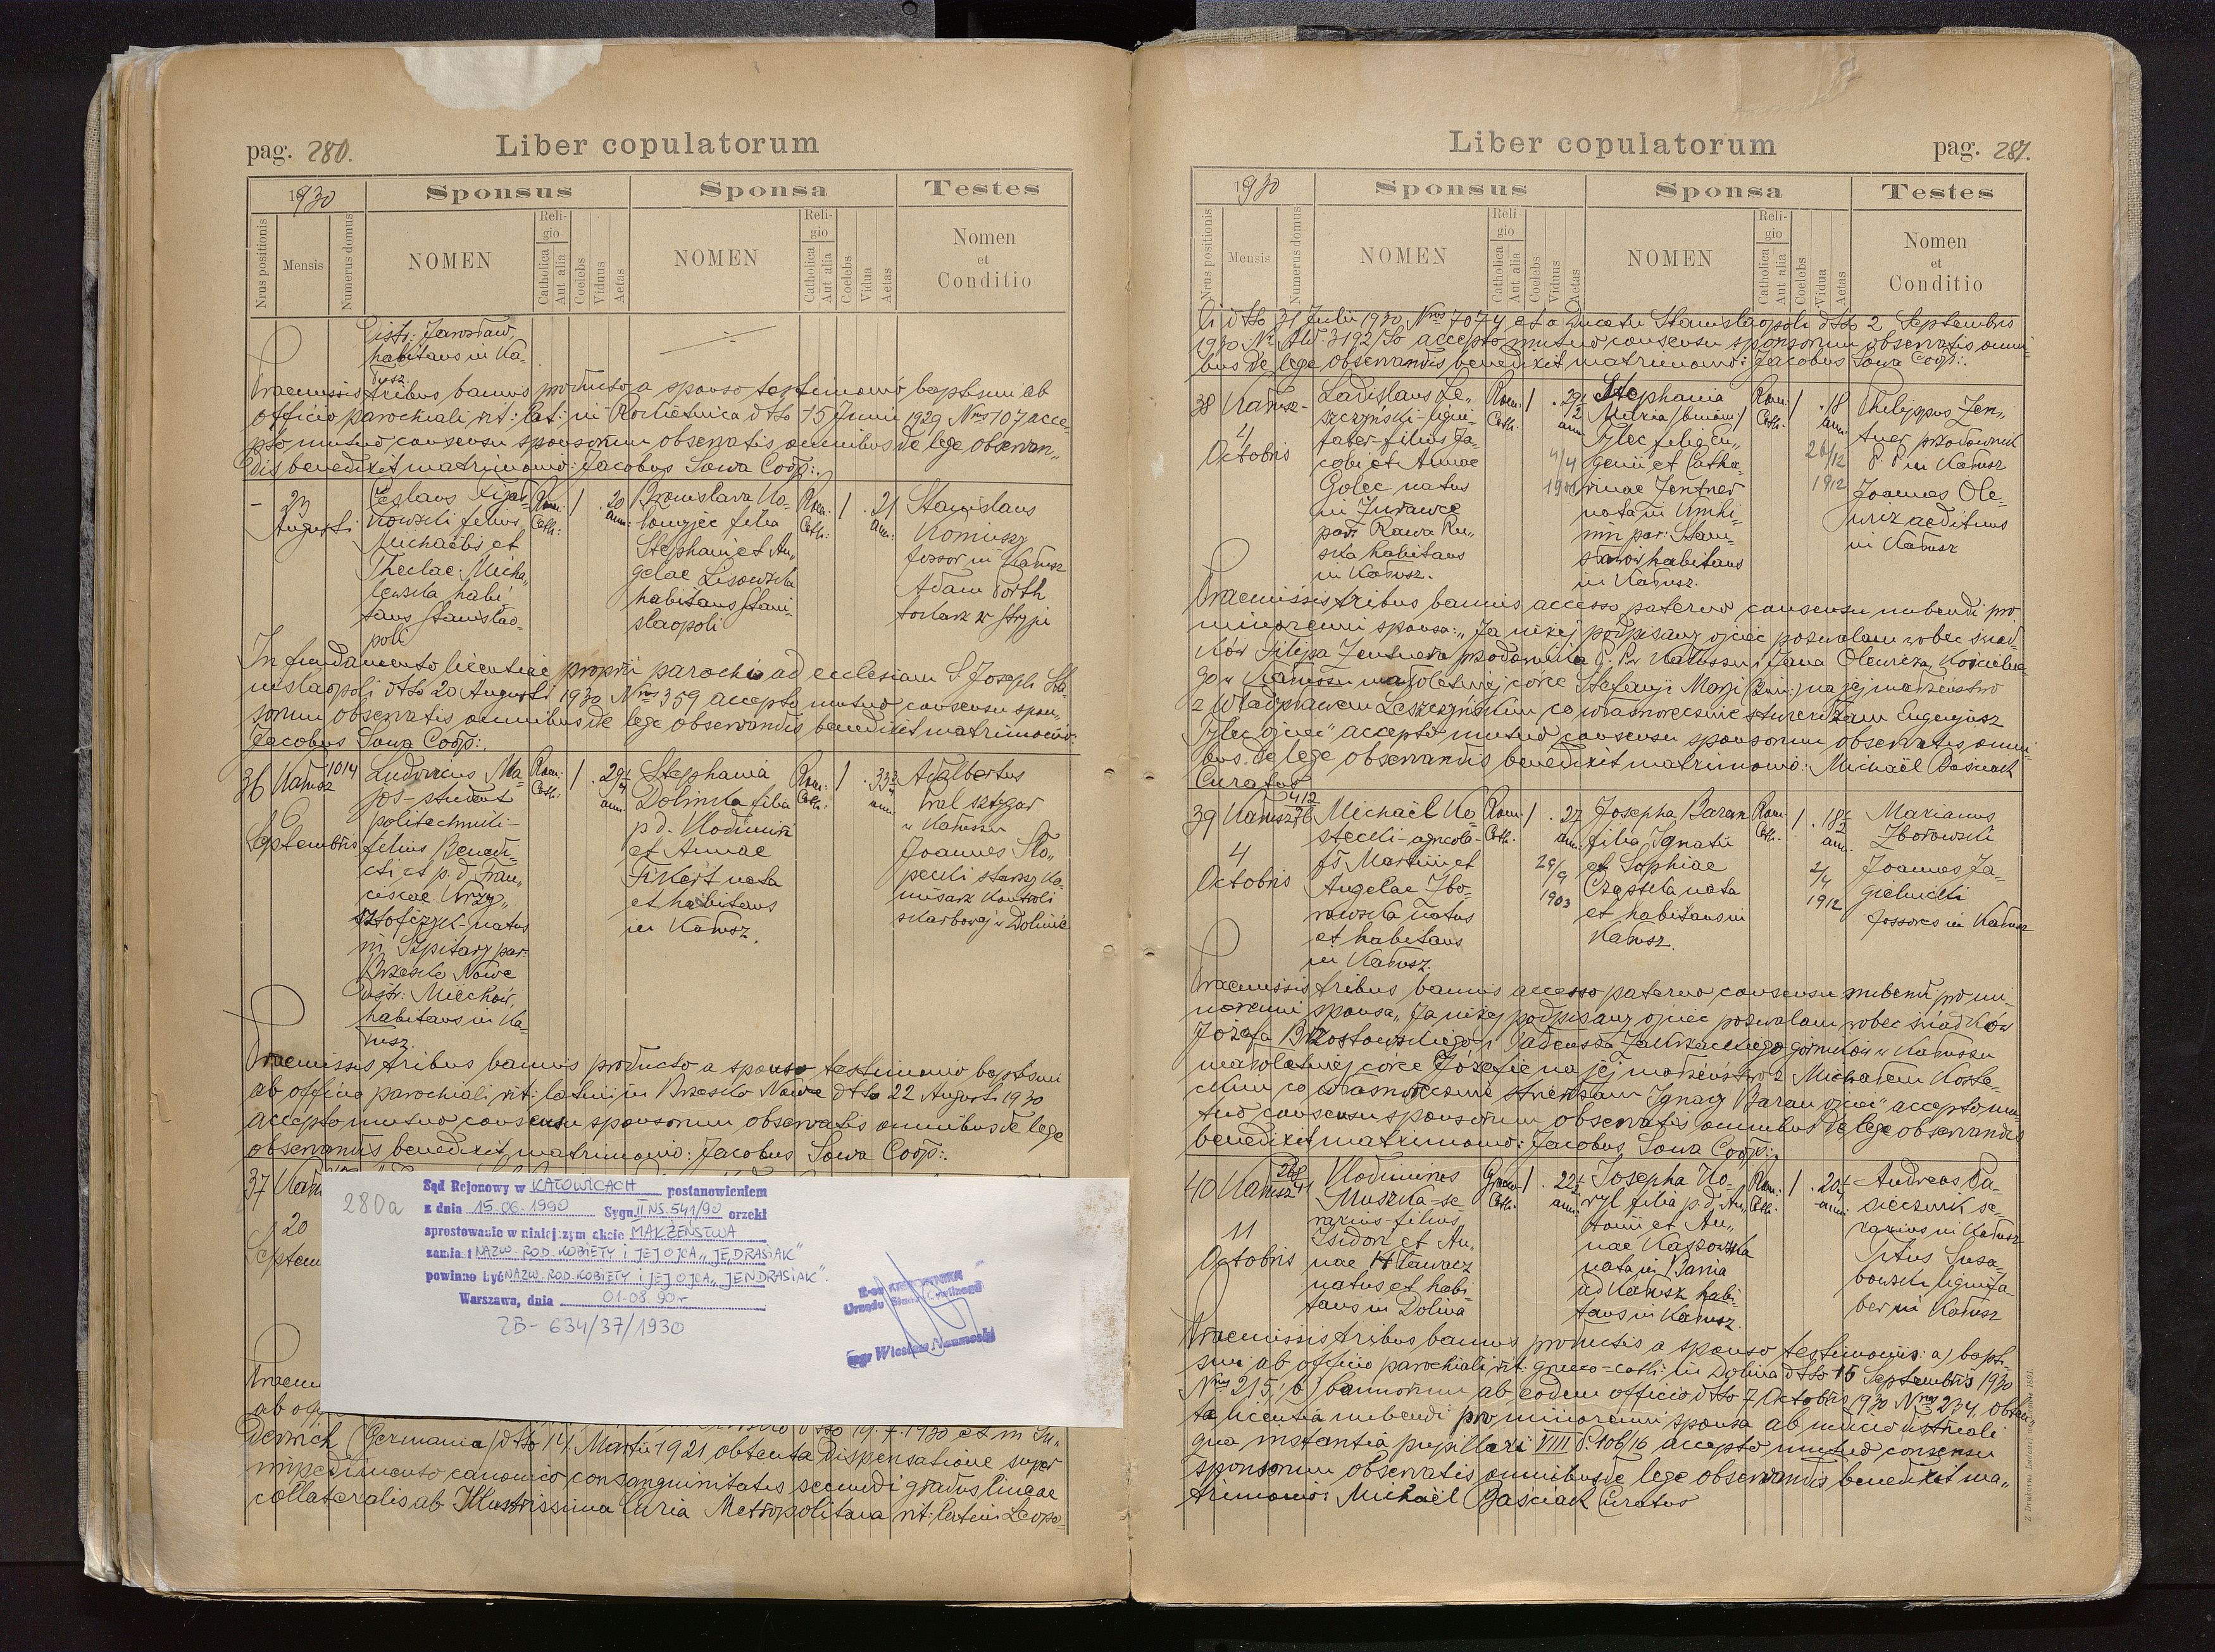 pag. 280.
Liber copulatorum
1930
Sponsus
Sponsa
Testes
Nrus positionis
Mensis
Numerus domus
NOMEN
Religio
Catholica
Aut alia
Coelebs
Viduus
Aetas
NOMEN
Religio
Catholica
Aut alia
Coelebs
Vidua
Aetas
Nomen
et
Conditio
Distr: Jarosław,
habitans in Ka-
łusz.
Praemissis tribus bannis producto a sponso testimonio baptismi ab
officio parochiali rit: lat: in Rokietnica dtto 15 Junii 1929 Nrus 107 acce-
pto mutuo consensu sponsorum observatis omnibus de lege observan-
dis benedixit matrimonio: Jacobus Sowa Coop:.
- 23
Augusti
Michaëlis et
Theclae Micha-
lewska habi-
tans Stanisłao-
poli
Rom:
Cath:
1
20
ann:
Bronislava Ko-
filia
Stephani et An-
gelae Lisowska
habitans Stani-
slaopoli
Rom:
Cath:
1
21
ann:
Stanislaus
Koniuszy
fossor in Kałusz
Adam Porth
tokarz w Stryju
In fundamento licentiae proprii parochi ad ecclesiam S Joseph Sta-
nislaopoli dtto 20 Augusti 1930 Nrus 359 accepto mutuo consensu spon-
sorum observatis omnibus de lege observandis benedixit matrimonio:
Jacobus Sowa Coop:.
36 Kałusz 1014
6
Septembris
Ludovicus Ma-
jos - student
politechniki -
filius Benedi-
cti et p.d. Fran-
ciscae Krzy-
sztofczyk - natus
in Szpitary par:
Brzesko Nowe
Distr: Miechów,
habitans in Ka-
łusz.
Rom:
Cath:
1
29
ann:
Stephania
Dolinska filia
p d. Vlodimiri
et Annae
Fikert nata
et habitans
in Kałusz.
Rom:
Cath:
1
33
ann:
Adalbertus
Kral sztygar
w Kałuszu
Joannes Sło-
pecki starszy ko-
misarz kontroli
skarbowej w Dolinie
Praemissis tribus bannis producto a sponso testimonio baptismi
ab officio parochiali rit: latini in Brzesko Nowe dtto 22 Augusti 1930
accepto mutuo consensu sponsorum observatis omnibus de lege
observandis benedixit matrimonio: Jacobus Sowa Coop:.
37 Kału
20
Septem
280a
Sąd Rejonowy w KATOWICACH postanowieniem
z dnia 15.06.1990 Sygn. II NS. 541/90 orzekł
sprostowanie w niniejszym akcie MAŁŻEŃSTWA
zamiast NAZW. ROD. KOBIETY I JEJ OJCA "JĘDRASIAK"
powinno być NAZW. ROD. KOBIETY I JEJ OJCA "JENDRASIAK".
Warszawa, dnia 01-08.90r
ZB- 634/37/1930
KIEROWNIKA
Urzędu Stanu Cywilnego
mgr Wiesław Naumoski
Praem
ab off
derwick (Germania) dtto 14 Martii 1921 obtenta dispensatione super
impedimento canonico consanguinitatis secundi gradus lineae
collateralis ab Illustrissima Curia Metropolitana rit: latini Leopo-
pag. 281.
Liber copulatorum
1930
Sponsus
Sponsa
Testes
Nrus positionis
Mensis
Numerus domus
NOMEN
Religio
Catholica
Aut alia
Coelebs
Viduus
Aetas
NOMEN
Religio
Catholica
Aut alia
Coelebs
Vidua
Aetas
Nomen
et
Conditio
li dtto 31 Julii 1930 Nrus 7074 et a Ducatu Stanislaopoli dtto 2 Septembris
1930 accepto mutuo consensu sponsorum observatis omni-
bus de lege observandis benedixit matrimonio: Jacobus Sowa Coop:.
38 Kałusz -
4
Octobris
Ladislaus Le-
szczyński - ligni-
faber - filius Ja-
cobi et Annae
Golec natus
in Zurawce
par: Rawa Ru-
ska habitans
in Kałusz.
Rom:
Cath:
1
29 1/2
ann:
4/4
1901
Stephania
Maria (binom:)
Tylec filia Eu-
genii et Catha-
rinae Zentner
nata in Knihi-
nin par: Stani-
sławów habitans
in Kałusz.
Rom:
Cath:
1
18
ann:
26/12
1912
Philippus Zen-
tner przodownik
P. P. in Kałusz
Joannes Ole-
wicz aedituus
in Kałusz
Praemissis tribus bannis accesso paterno consensu nubendi pro
minorenni sponsa: "Ja niżej podpisany ojciec pozwalam wobec świad-
ków Filipa Zentnera przodownika P. P. w Kałuszu i Jana Olewicza, kościelne-
go w Kałuszu małoletniej córce Stefanji Marji (2im:) na jej małżeństwo
z Władysławem Leszczyńskim co własnoręcznie stwierdzam Eugenjusz
Tylec ojciec" accepto mutuo consensu sponsorum observatis omni-
bus de lege observandis benedixit matrimonio: Michaël Baściak
Curatus
39 Kałusz 412
4
Octobris
Michaël Ko-
stecki - agricola -
fs Martini et
Angelae Zbo-
rowska natus
et habitans
in Kałusz.
Rom:
Cath:
1
27
ann:
29/9
1903
Josepha Baran
filia Ignatii
et Sophiae
Cząstka nata
et habitans in
Kałusz.
Rom:
Cath:
1
18 1/2
ann:
2/4
1912
Marianus
Zborowski
Joannes Ja-
gielnicki
fossores in Kałusz
Praemissis tribus bannis accesso paterno consensu nubendi pro mi-
norenni sponsa "Ja niżej podpisany ojciec pozwalam wobec świadków
Józefa Brzostowskiego i Tadeusza Zakrzackiego górników w Kałuszu
małoletniej córce Józefie na jej małżeństwo z Michałem Koste-
ckim co własnoręcznie stwierdzam Ignacy Baran ojciec" accepto mu-
tuo consensu sponsorum observatis omnibus de lege observandis
benedixit matrimonio: Jacobus Sowa Coop:.
40 Kałusz
11
Octobris
Vlodimirus
Muszka - se-
rarius - filius
Isidori et An-
nae Hławacz
natus et habi-
tans in Dolina
Graeco-
Cath:
1
22
ann:
Josepha Ko-
ryl filia p.d. An-
tonii et An-
nae Kaszowska
nata in Bania
ad Kałusz habi-
tans in Kałusz.
Rom:
Cath:
1
20
ann:
Andreas Pa-
siecznik se-
rarius in Kałusz
Titus Susa-
bowski lignifa-
ber in Kałusz
Praemissis tribus bannis productis a sponso testimoniis: a) bapti-
smi ab officio parochiali rit: graeco-cath: in Dolina dtto 15 Septembris 1930
Nrus 215; b) bannorum ab eodem officio dtto 7 Octobris 1930 Nrus 274. obten-
ta licentia nubendi pro minorenni sponsa ab iudicio districtuali
qua instantia pupillari VIII P. 106/16 accepto mutuo consensu
sponsorum observatis omnibus de lege observandis benedixit ma-
trimonio: Michaël Baściak Curatus